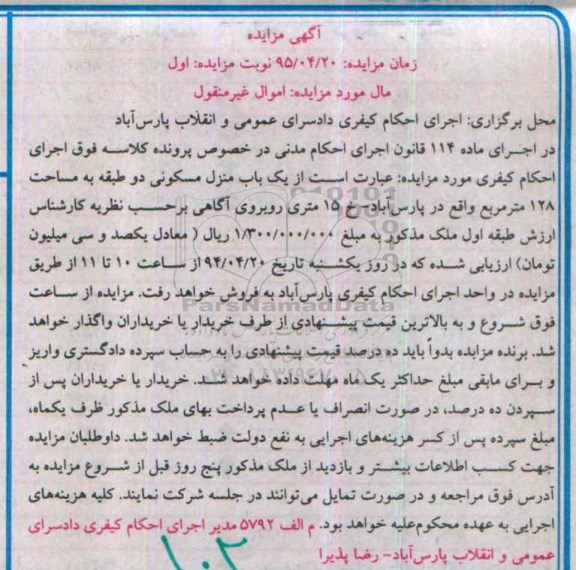 آگهی مزایده
زمان مزایده: ۹۵/۰۴/۲۰ نوبت مزایده: اول
مال مورد مزایده: اموال غیرمنقول
محل برگزاری: اجرای احکام کیفری دادسرای عمومی و انقلاب پارس‌آباد
در اجرای ماده ۱۱۴ قانون اجرای احکام مدنی در خصوص پرونده کلاسه فوق اجرای
احکام کیفری مورد مزایده: عبارت است از یک باب منزل مسکونی دو طبقه به مساحت
۱۲۸ مترمربع واقع در پارس‌آباد- خ ۱۵ متری روبروی آگاهی برحسب نظریه کارشناس
ارزش طبقه اول ملک مذکور به مبلغ ۱/۳۰۰/۰۰۰/۰۰۰ ریال ( معادل یکصد و سی میلیون
تومان) ارزیابی شده که در روز یکشنبه تاریخ ۹۴/۰۴/۲۰ از ساعت ۱۰ تا ۱۱ از طریق
مزایده در واحد اجرای احکام کیفری پارس‌آباد به فروش خواهد رفت. مزایده از ساعت
فوق شروع و به بالاترین قیمت پیشنهادی از طرف خریدار یا خریداران واگذار خواهد
شد. برنده مزابده بدواً باید ده درصد قیمت پیشنهادی را به حساب سپرده دادگستری واریز
و برای مابقی مبلغ حداکثر یک ماه مهلت داده خواهد شد. خریدار یا خریداران پس از
سپردن ده درصد، در صورت انصراف یا عدم پرداخت بهای ملک مذکور ظرف یکماه،
مبلغ سپرده پس از کسر هزینه‌های اجرایی به نفع دولت ضبط خواهد شد. داوطلبان مزایده
جهت کسب اطلاعات بیشتر و بازدید از ملک مذکور پنج روز قبل از شروع مزایده به
آدرس فوق مراجعه و در صورت تمایل می‌توانند در جلسه شرکت نمایند. کلیه هزینه‌های
اجرایی به عهده محکوم‌علیه خواهد بود. م الف ۵۷۹۲ مدیر اجرای احکام کیفری دادسرای
عمومی و انقلاب پارس‌آباد- رضا پذیرا
ParsNamadData
۱۰۲